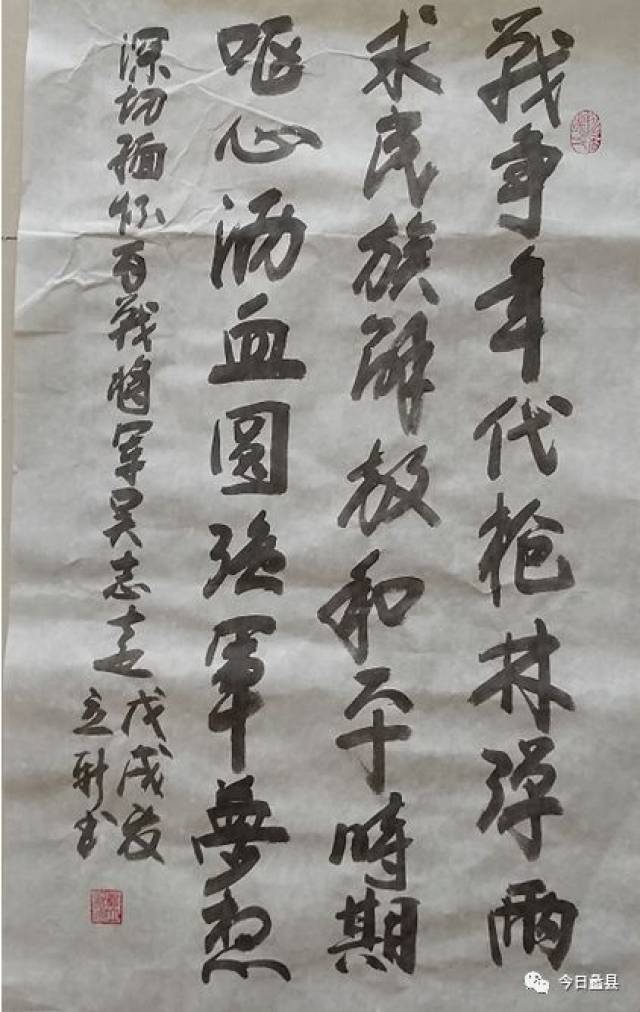 战争年代枪林弹雨
求民族解放和平時期
呕心沥血圆强軍夢想
深切缅怀百战将军吴志远
戊戌
立新书
今日蠡县